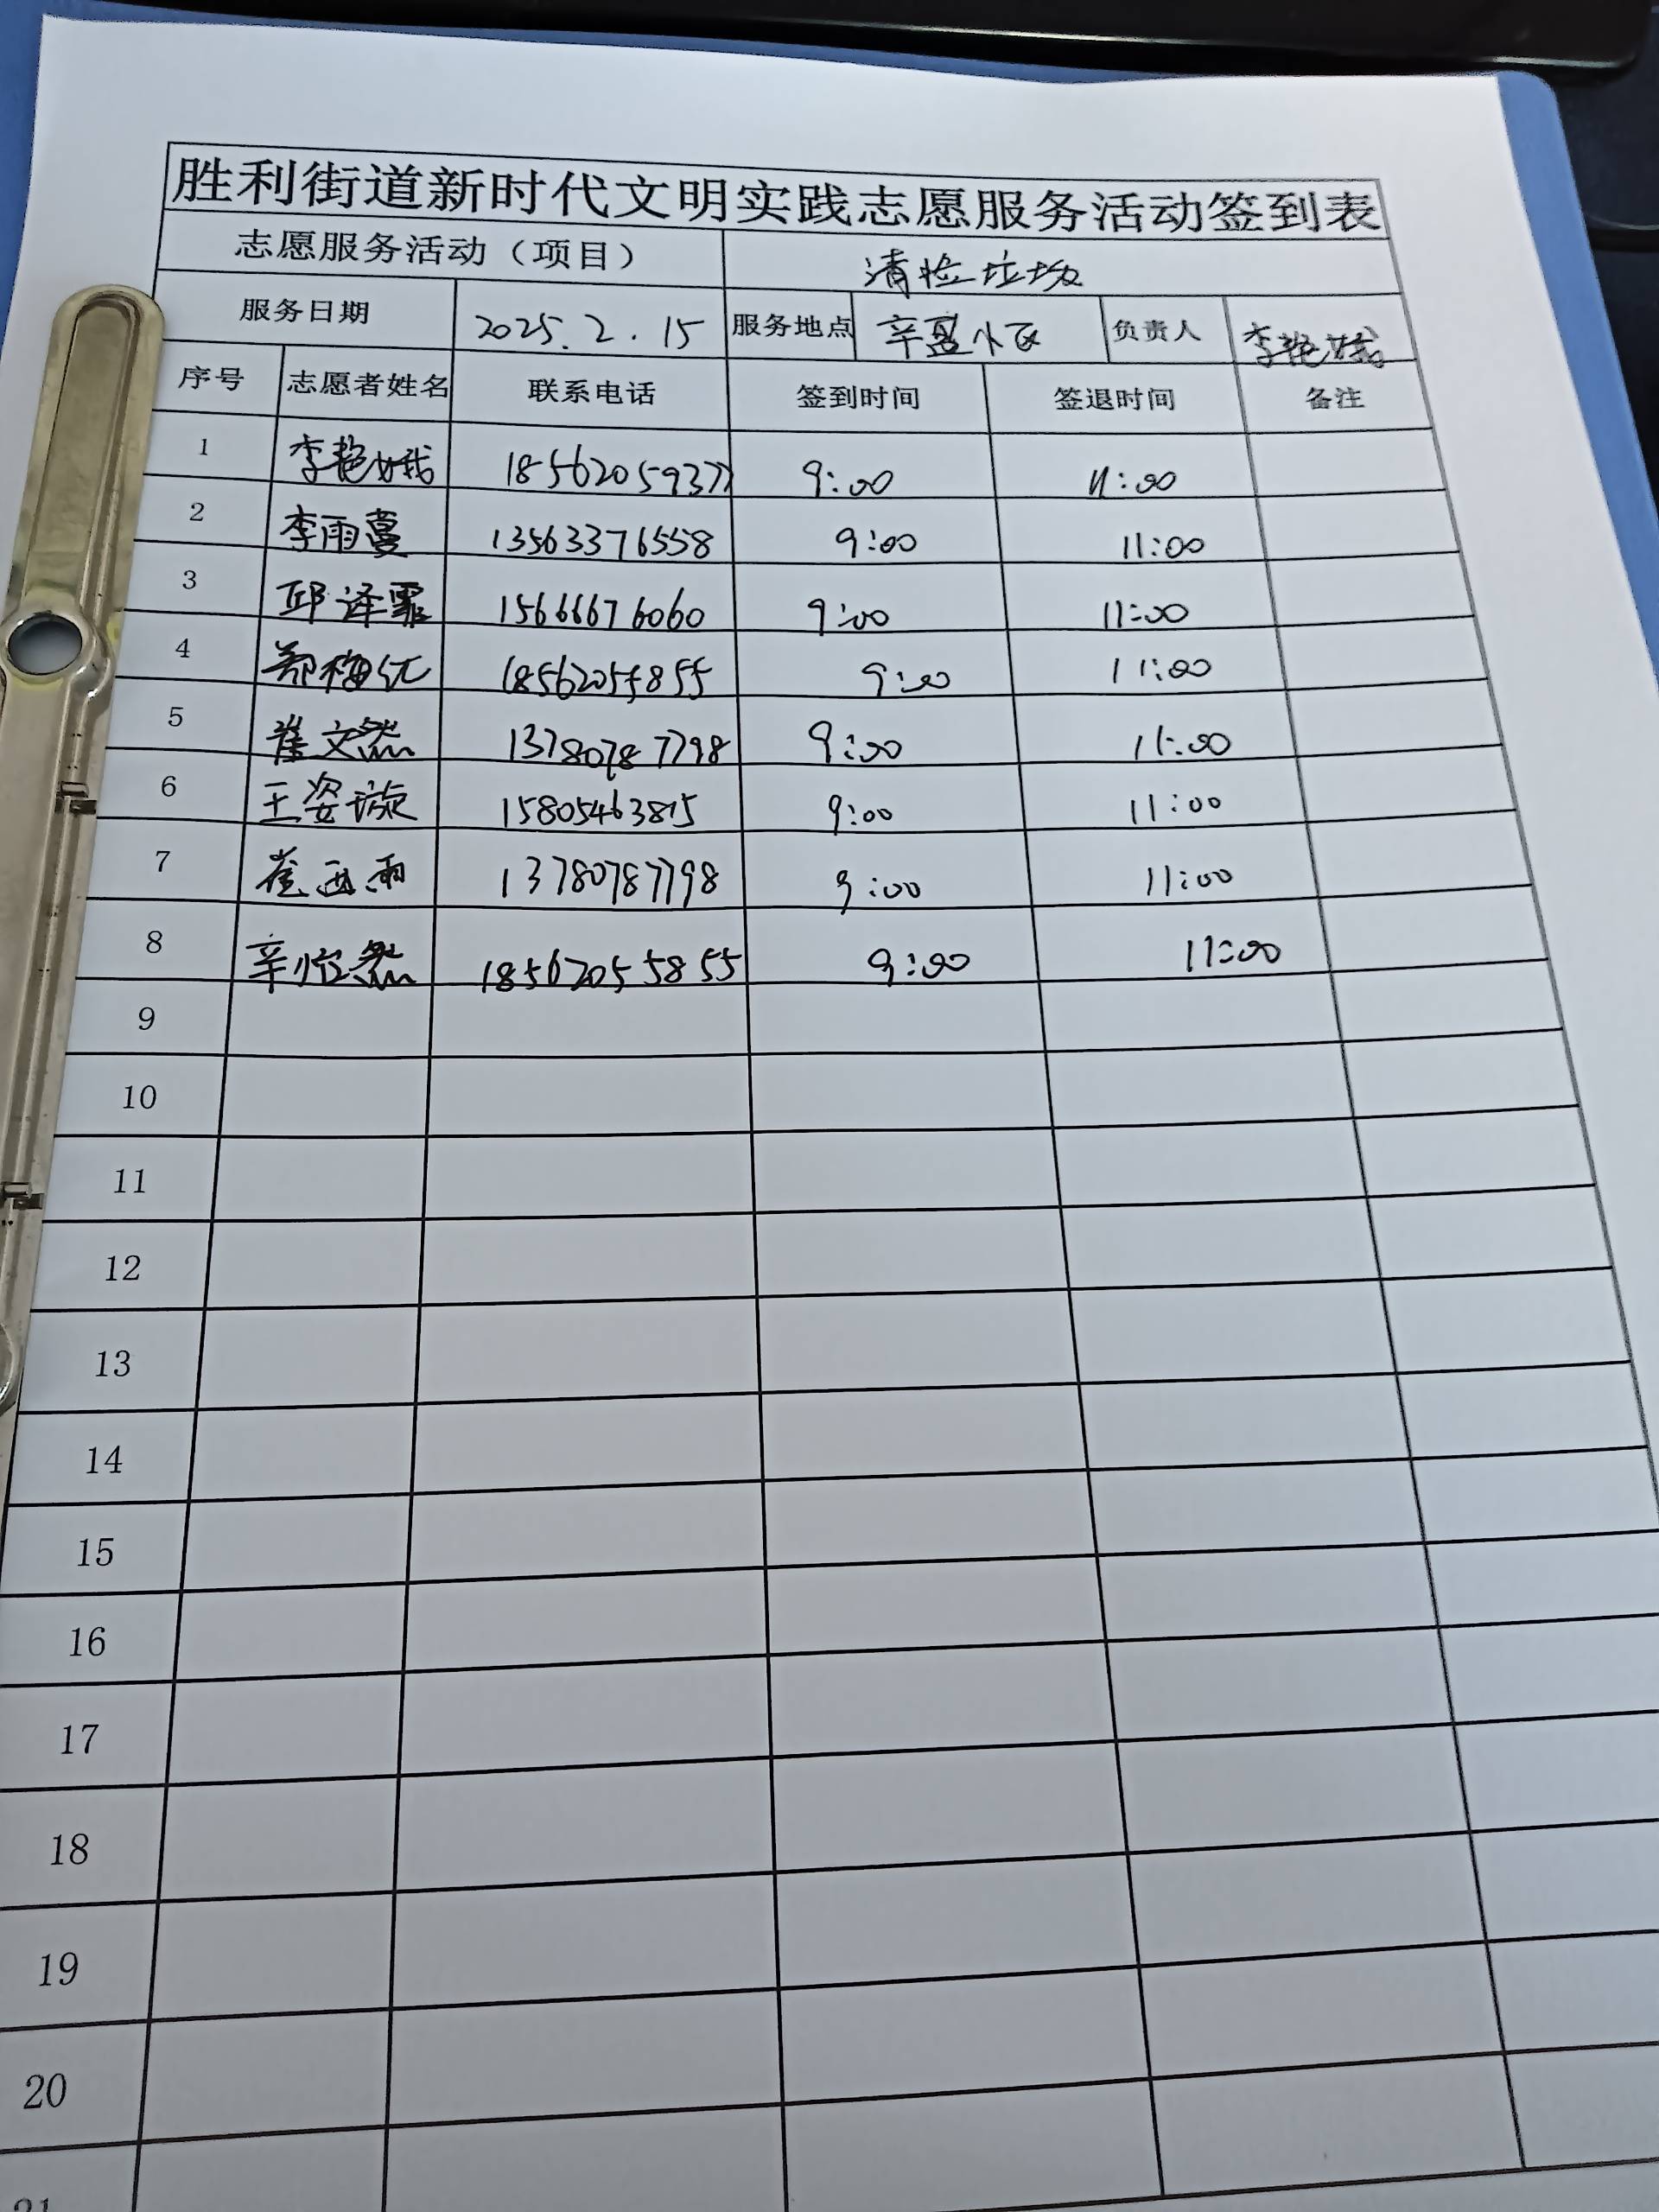 胜利街道新时代文明实践志愿服务活动签到表
志愿服务活动（项目） 清捡垃圾
服务日期 2025.2.15 服务地点 辛盈小区 负责人 李艳娥
序号 志愿者姓名 联系电话 签到时间 签退时间 备注
1 李艳娥 18562059377 9:00 11:00
2 李雨蔓 13563376558 9:00 11:00
3 邱译霏 15666676060 9:00 11:00
4 郑梅优 18562055855 9:00 11:00
5 崔文然 13780787798 9:00 11:00
6 王姿璇 15805463815 9:00 11:00
7 崔西雨 13780787798 9:00 11:00
8 辛怡然 18562055855 9:00 11:00
9
10
11
12
13
14
15
16
17
18
19
20
21